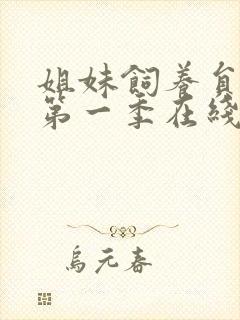 姐妹飼養員
第一季在綫
烏元春